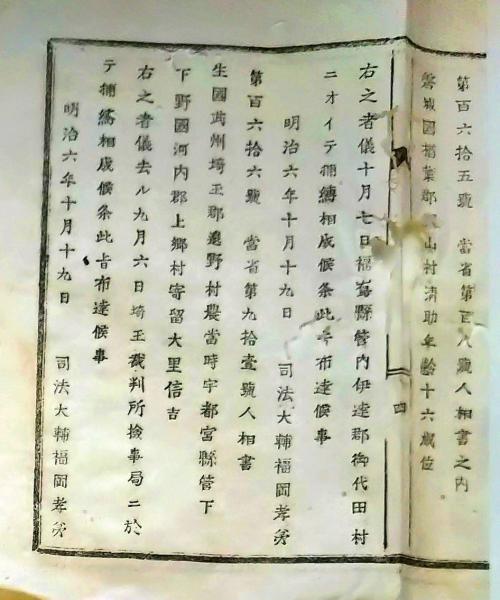 第百六拾五號 當省第百八號人相書之内
磐城國楢葉郡 山村清助年齡十六歳位
四
右之者儀十月七日福島縣管内伊達郡御代田村
ニオイテ捕縛相成候条此旨布達候事
明治六年十月十九日 司法大輔福岡孝弟
第百六拾六號 當省第九拾壹號人相書
生國武州埼玉郡 野村農當時宇都宮縣管下
下野國河内郡上郷村寄留大里信吉
右之者儀去ル九月六日埼玉裁判所撿事局ニ於
テ捕縛相成候条此旨布達候事
明治六年十月十九日 司法大輔福岡孝弟